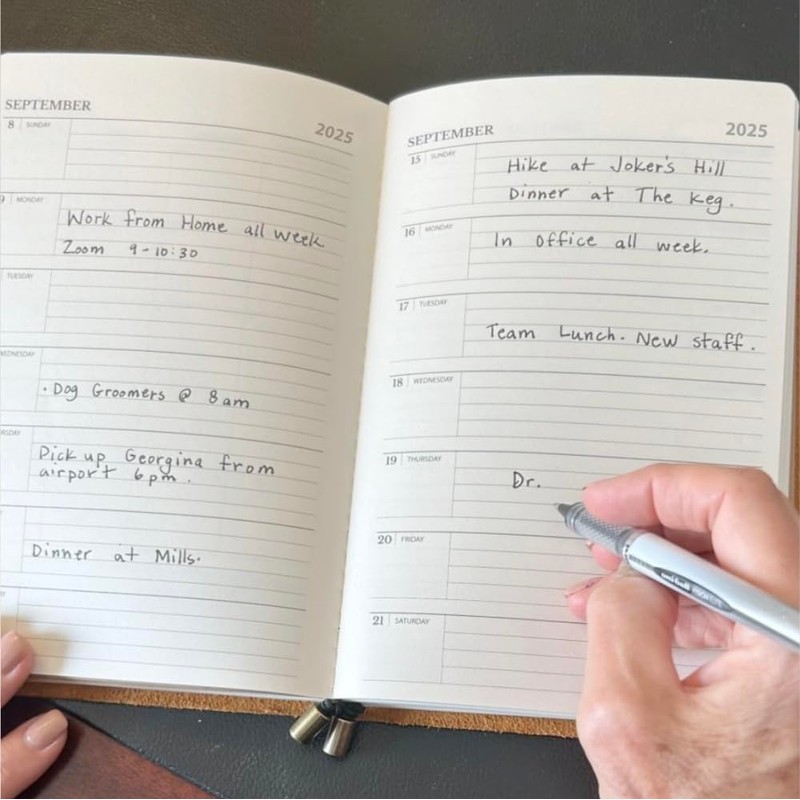 SEPTEMBER
2025
8 SUNDAY
9 MONDAY
Work from Home all week
Zoom 9-10:30
TUESDAY
WEDNESDAY
· Dog Groomers @ 8am
Pick up Georgina from
airport 6pm.
Dinner at Mills.
SEPTEMBER
2025
15 SUNDAY
Hike at Joker's Hill
Dinner at The Keg.
16 MONDAY
In Office all week.
17 TUESDAY
Team Lunch. New staff.
18 WEDNESDAY
19 THURSDAY
Dr.
20 FRIDAY
21 SATURDAY
uni-ball